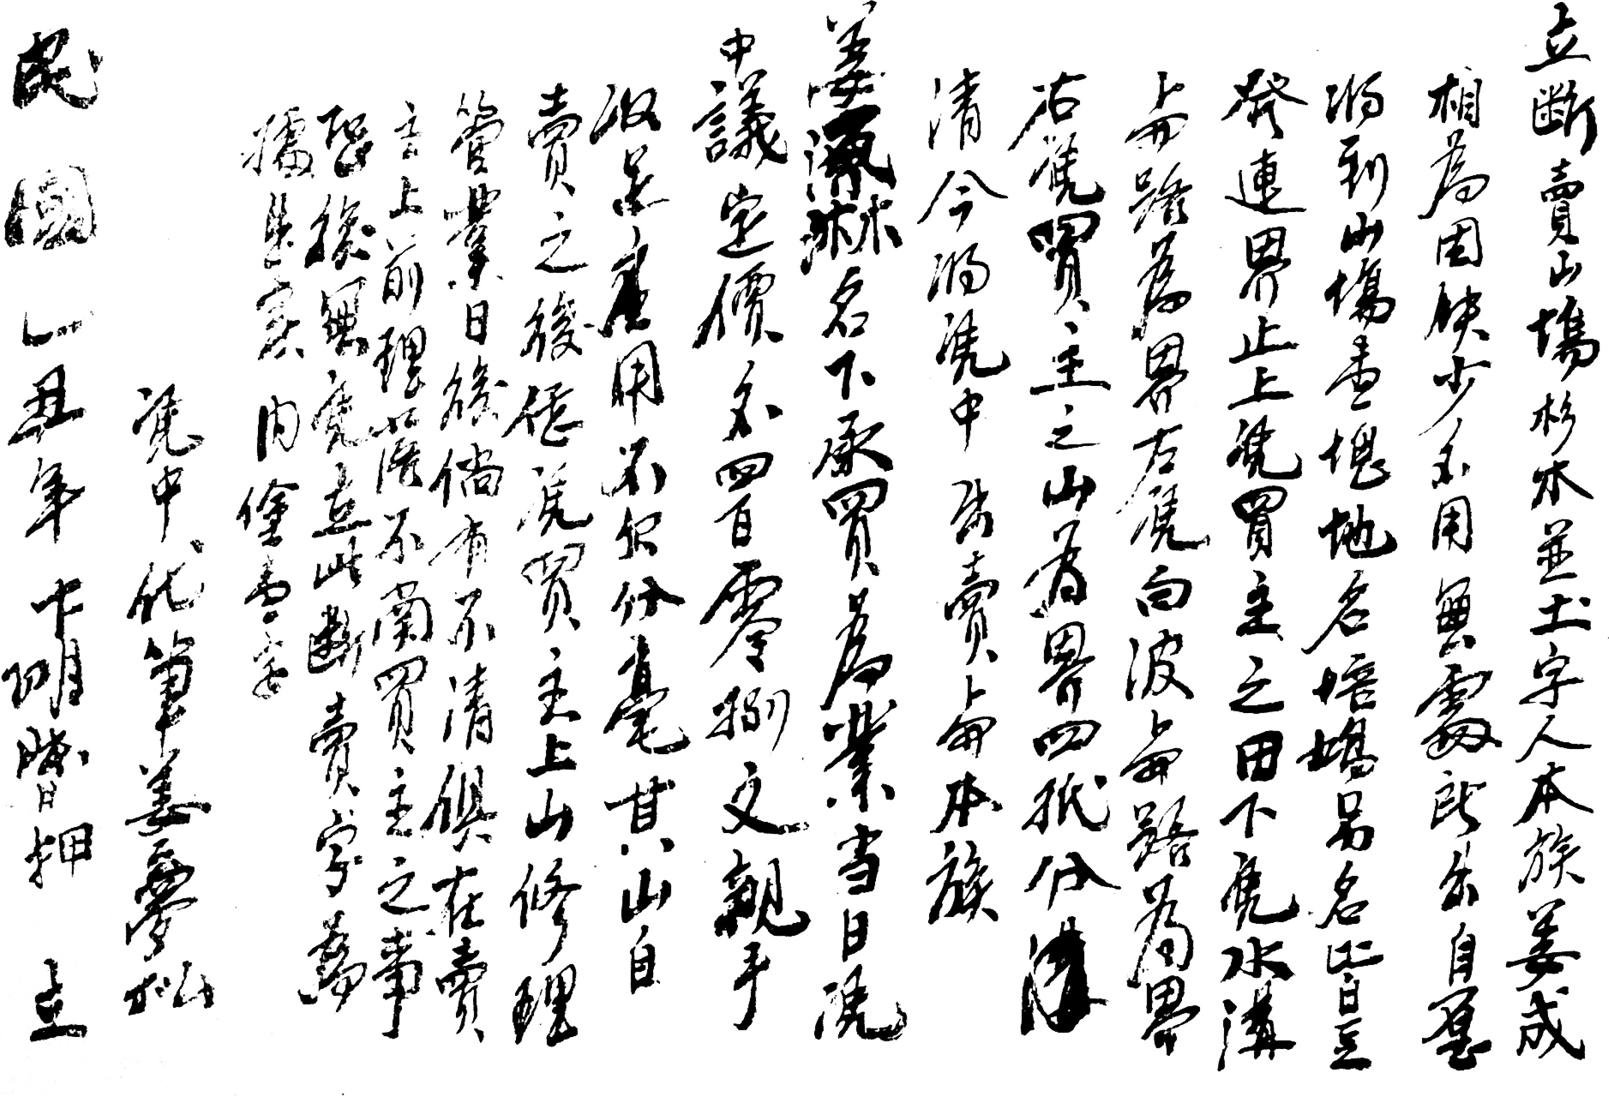 立斷賣山塲杉木並土字人本族姜成
相為因缺少銀用無處所出自願
將到山塲壹塊地名培塲另名皆豆
登連界止上凴買主之田下凴水溝
與路為界左凴向波與路為界
右凴買主之山為界四抵分
清今將凴中出賣與本族
姜源淋名下承買為業當日凴
中議定價錢四百零捌文親手
收足應用不欠分毫其山自
賣之後任凴買主上山修理
管業日後倘有不清俱在賣
主上前理落不關買主之事
恐後無凴立此斷賣字為
據是实 內塗壹字
凴中代筆姜夢松
民國一丑年十 押 立